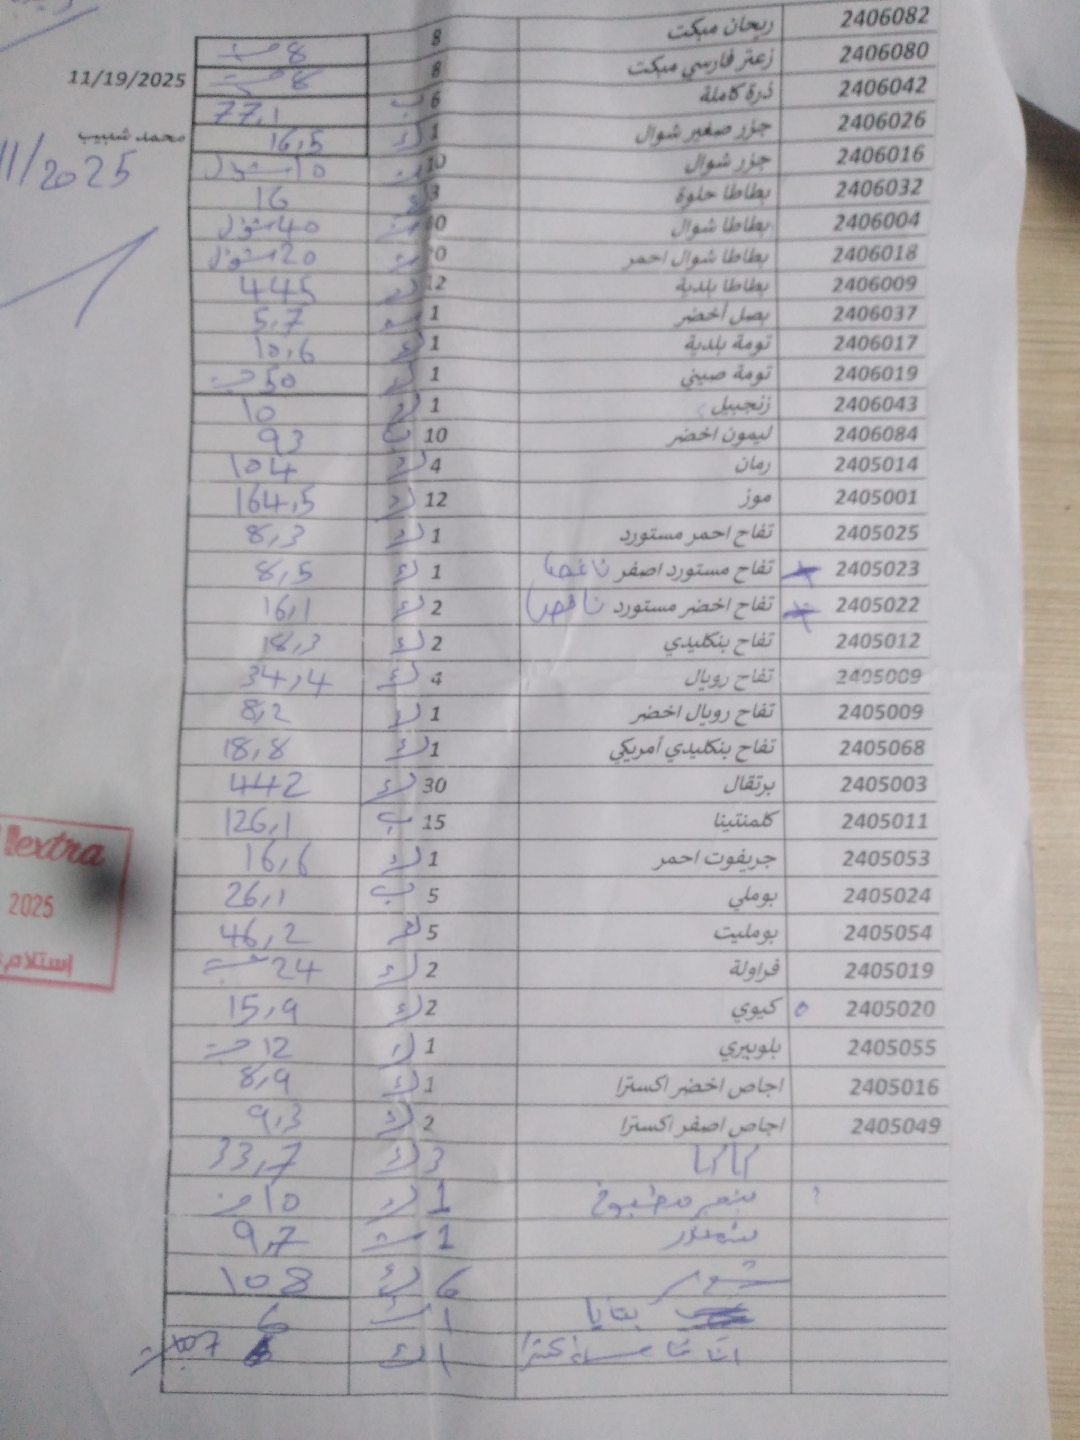 2406082 ريحان مبكت 8 8
2406080 زعتر فارسي مبكت 8 8
11/19/2025
2406042 ذرة كاملة 6 ب 77,1
2406026 جزر صغير شوال 1 ك 16,5
محمد شبيب
11/2025
2406016 جزر شوال 10 10 شوال
2406032 بطاطا حلوة 3 ك 16
2406004 بطاطا شوال 40 شوال
2406018 بطاطا شوال احمر 20 شوال
2406009 بطاطا بلدية 12 445
2406037 بصل أخضر 1 5,7
2406017 تومة بلدية 1 ك 10,6
2406019 تومة صيني 1 50
2406043 زنجبيل 1 ك 10
2406084 ليمون اخضر 10 ب 93
2405014 رمان 4 ك 104
2405001 موز 12 ك 164,5
2405025 تفاح احمر مستورد 1 ك 8,3
2405023 تفاح مستورد اصفر ناقص 1 ك 8,5
2405022 تفاح اخضر مستورد ناقص 2 ك 16,1
2405012 تفاح بنكليدي 2 ك 18,3
2405009 تفاح رويال 4 ك 34,4
2405009 تفاح رويال اخضر 1 ك 8,2
2405068 تفاح بنكليدي أمريكي 1 ك 18,8
2405003 برتقال 30 ك 442
2405011 كلمنتينا 15 ب 126,1
extra
2405053 جريفوت احمر 1 ك 16,6
2405024 بوملي 5 ب 26,1
2025
2405054 بومليت 5 ك 46,2
استلام
2405019 فراولة 2 ك 24
2405020 كيوي 2 ك 15,9
2405055 بلوبيري 1 ك 12
2405016 اجاص اخضر اكسترا 1 ك 8,9
2405049 اجاص اصفر اكسترا 2 ك 9,3
كاكا 3 ك 33,7
مطبوخ 1 ك 10
شمندر 1 9,7
6 ك 108
1 6
1 ك